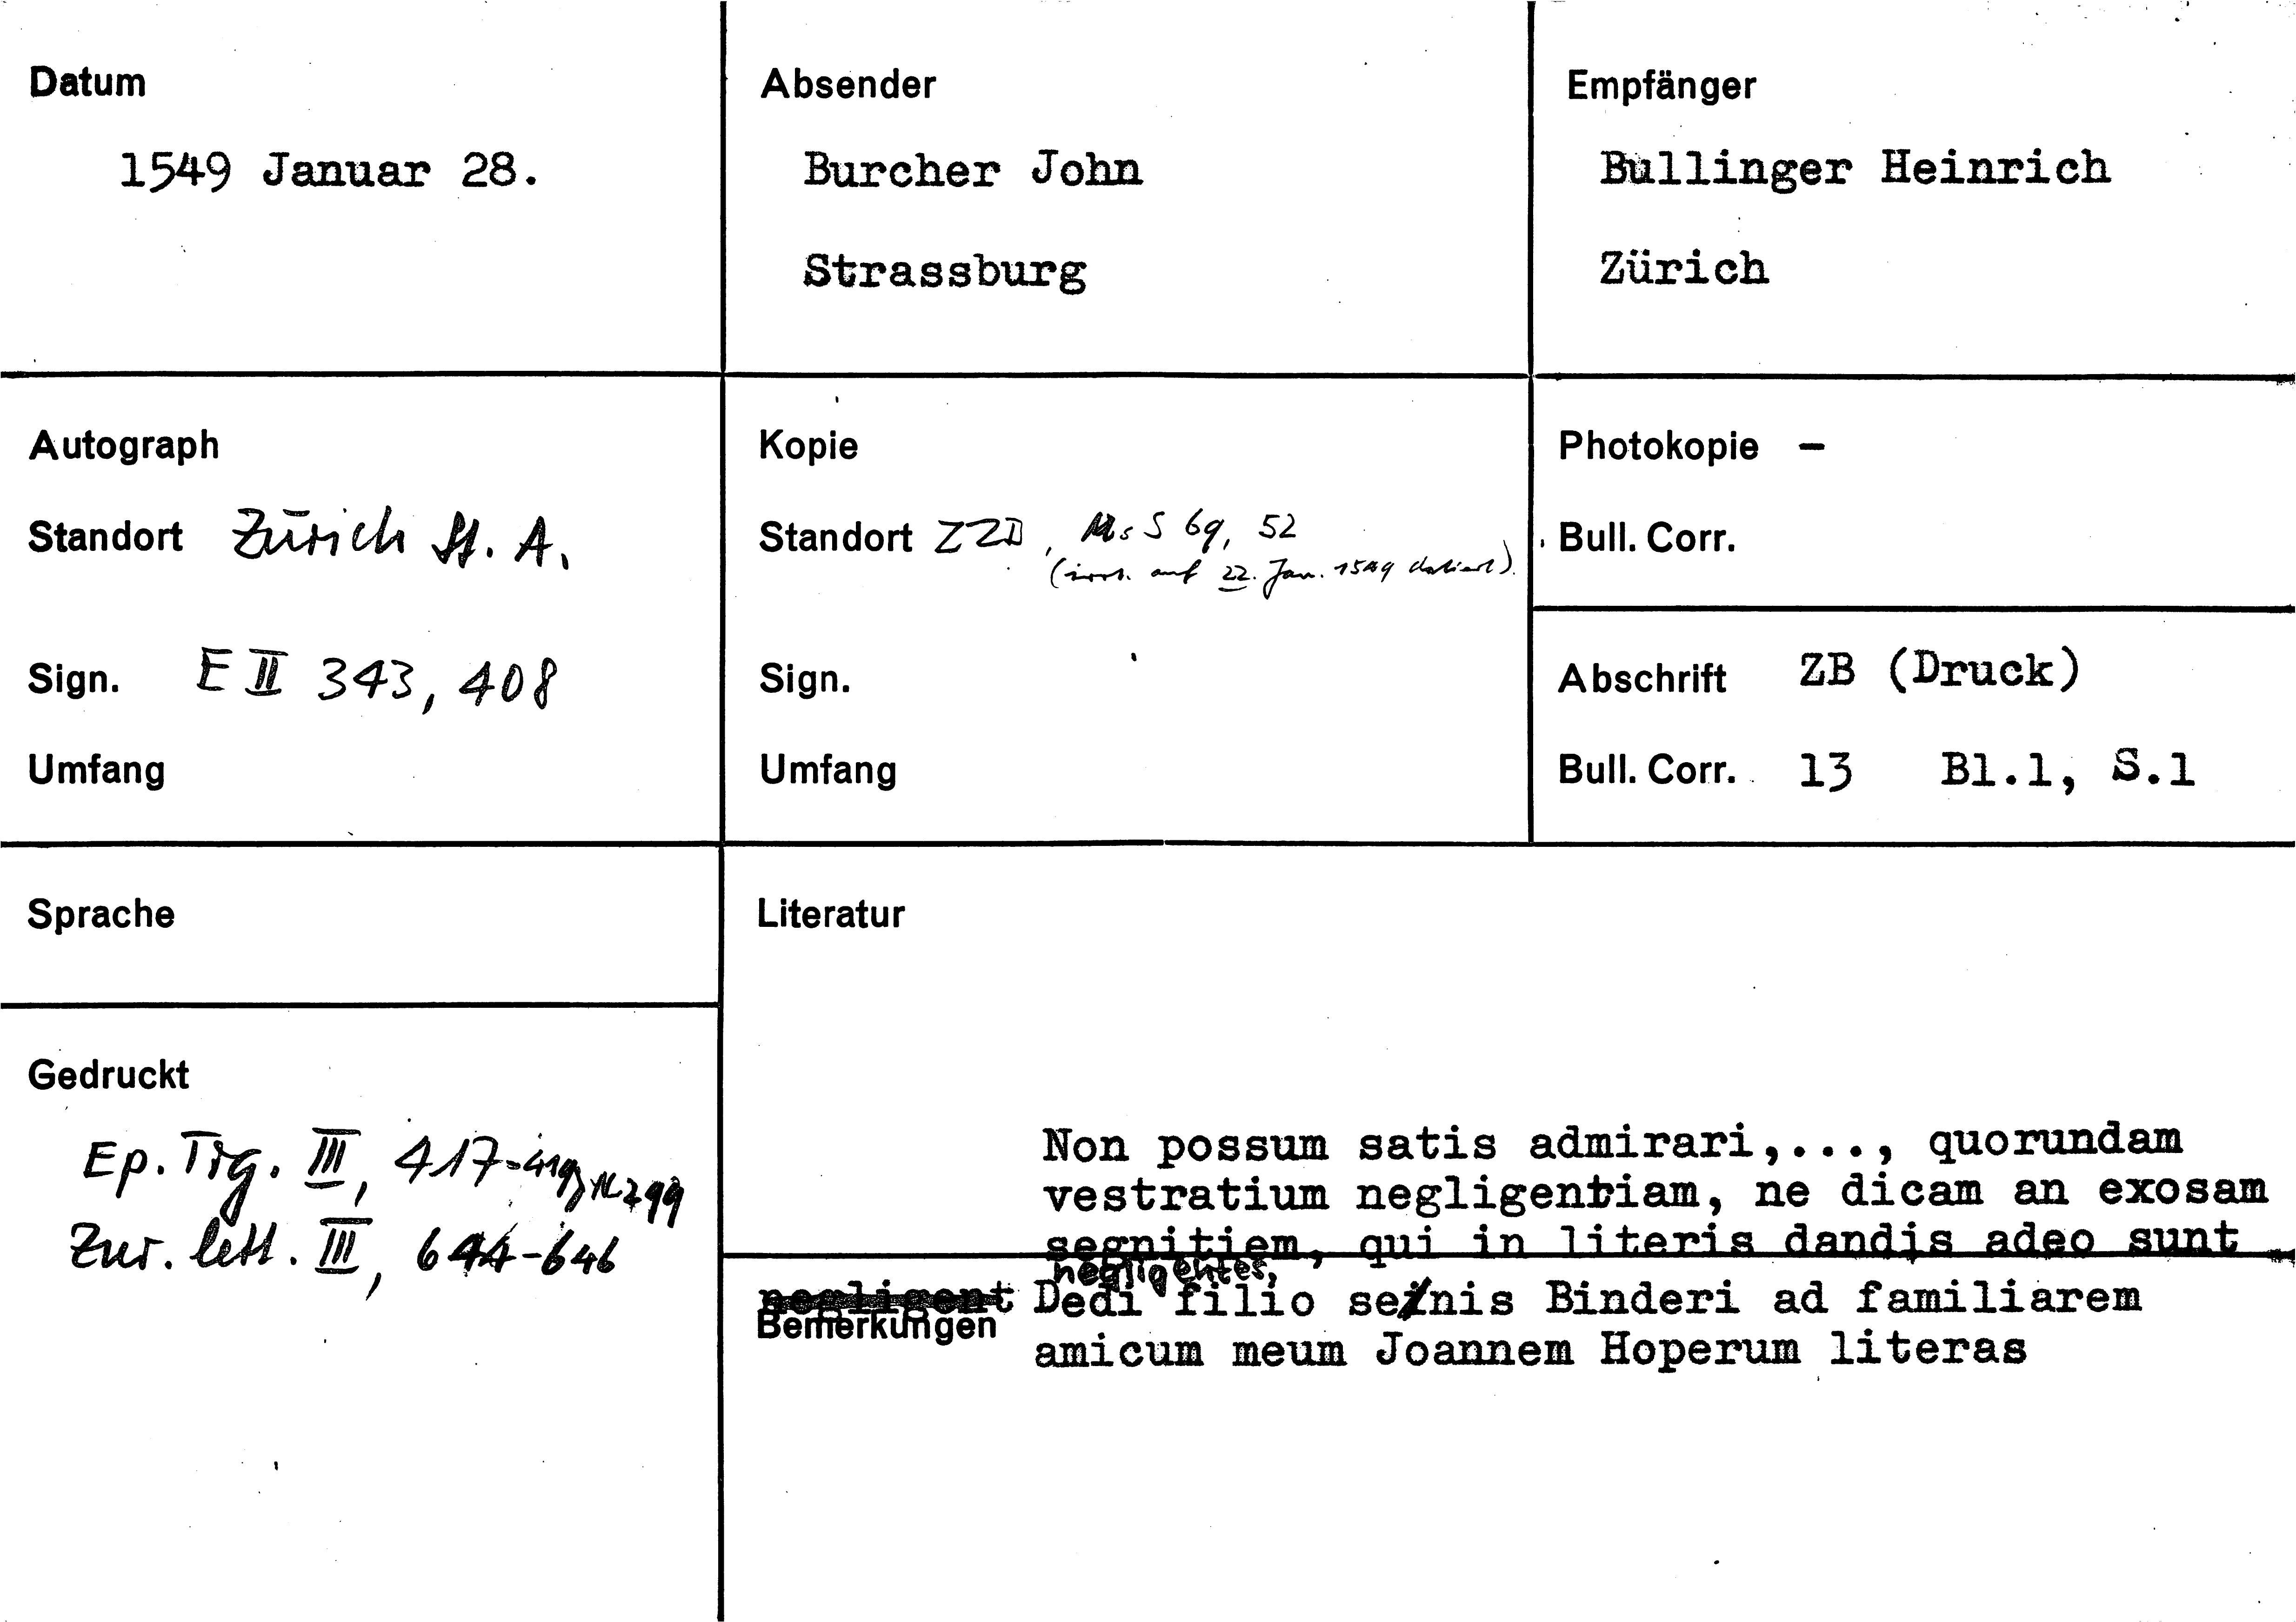 Datum
1549 Januar 28.
Absender
Burcher John
Strassburg
Empfänger
Bullinger Heinrich
Zürich
Autograph
Standort Zürich St. A.
Sign. E II 343, 408
Umfang
Kopie
Standort ZZB, Ms S 69, 52
(irrt. auf 22. Jan. 1549 datiert).
Sign.
Umfang
Photokopie -
Bull. Corr.
Abschrift ZB (Druck)
Bull. Corr. 13 Bl.1, S.1
Sprache
Gedruckt
Ep. Tig. III, 417-419, N 299
Zur. lett. III, 644-646
Literatur
Non possum satis admirari,..., quorundam
vestratium negligentiam, ne dicam an exosam
segnitiem, qui in literis dandis adeo sunt
negligentes,
negligent Dedi filio senis Binderi ad familiarem
Bemerkungen
amicum meum Joannem Hoperum literas